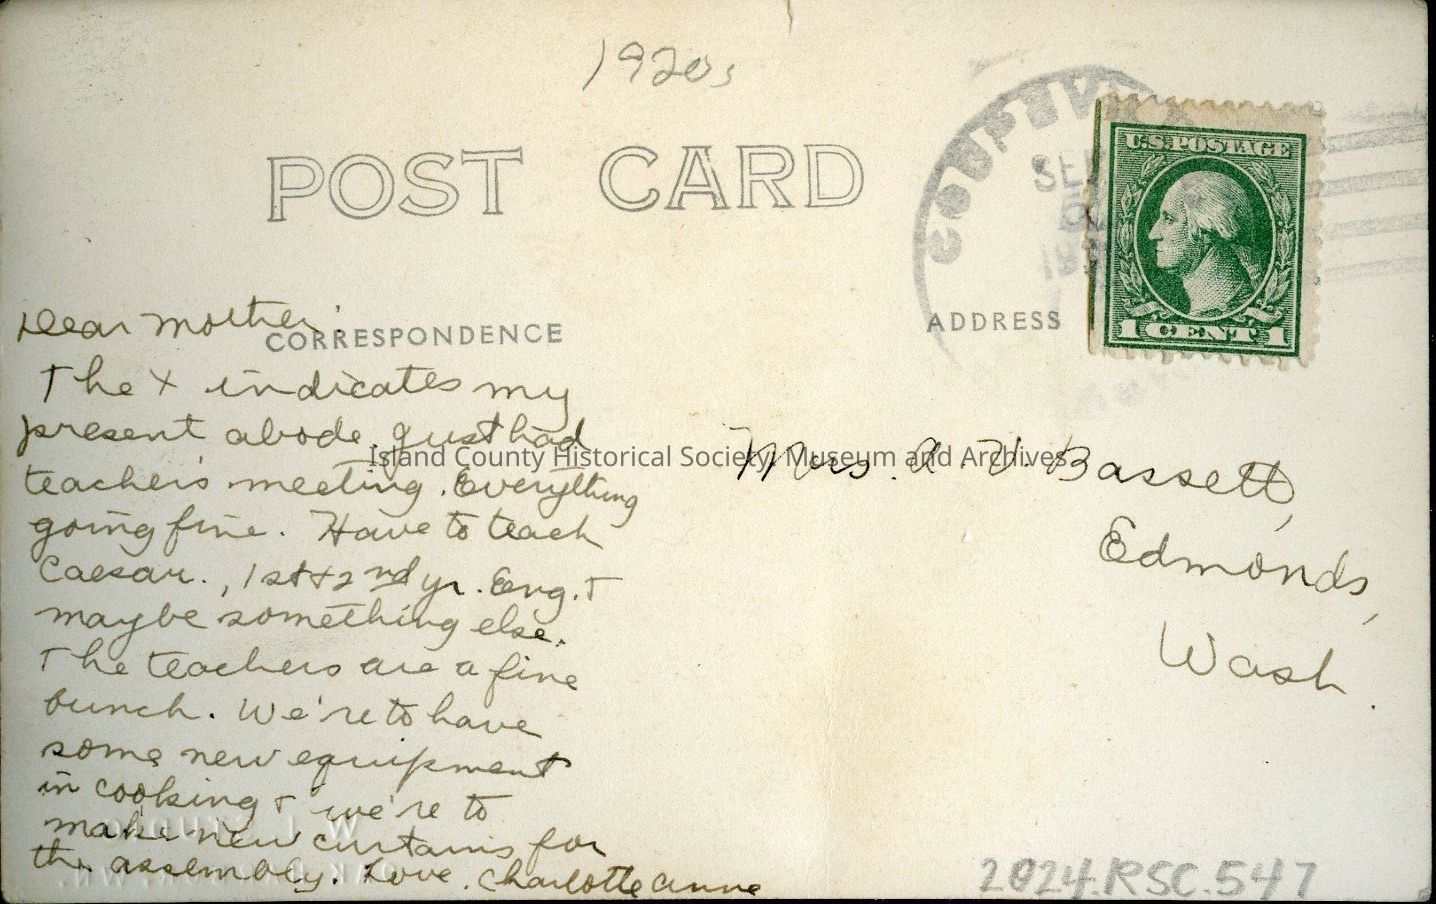 1920s
POST CARD
COUPEVI
SE
U.S. POSTAGE
1 CENT 1
CORRESPONDENCE
ADDRESS
Dear Mother,
The X indicates my
present abode. Just had
teachers meeting. Everything
going fine. Have to teach
Caesar., 1st & 2nd yr. Eng. &
maybe something else.
The teachers are a fine
bunch. We're to have
some new equipment
in cooking & we're to
make new curtains for
the assembly. Love. Charlotte Anne
Mrs. A. Bassett,
Edmonds,
Wash
Island County Historical Society, Museum and Archives
2024.RSC.547